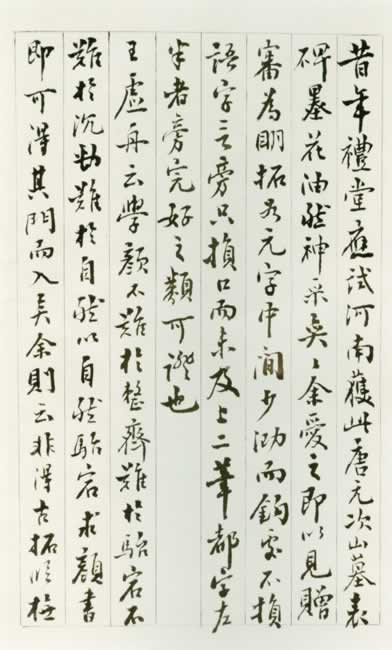 昔年禮堂應試河南獲此唐元次山墓表
碑墨花油然神采奕〻余愛之即以見贈
審為明拓若元字中間少泐而鉤處不損
語字言旁只損口而未及上二筆都字左
半者旁完好之類可證也
王虛舟云學顏不難於整齊難於駘宕不
難於沉勁難於自然以自然駘宕求顏書
即可得其門而入矣余則云非得古拓